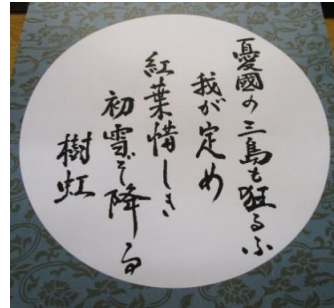 憂國の三島も狂るふ
我が定め
紅葉惜しき
初雪ぞ降る
樹虹